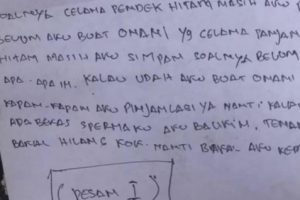 SOALNYA CELANA PENDEK HITAM MASIH AKU P
BELUM AKU BUAT OMANI YG CELANA PANJAN
HITAM MASIH AKU SIMPAN SOALNYA BELUM
APA-APAIN. KALAU UDAH AKU BUAT OMANI
KAPAN-KAPAN AKU PINJAM LAGI YA NANTI KALAU
ADA BEKAS SPERMAKU AKU BALIKIN. TENAN
BAKAL HILANG KOK. NANTI BAKAL AKU KE
( PESAN I )